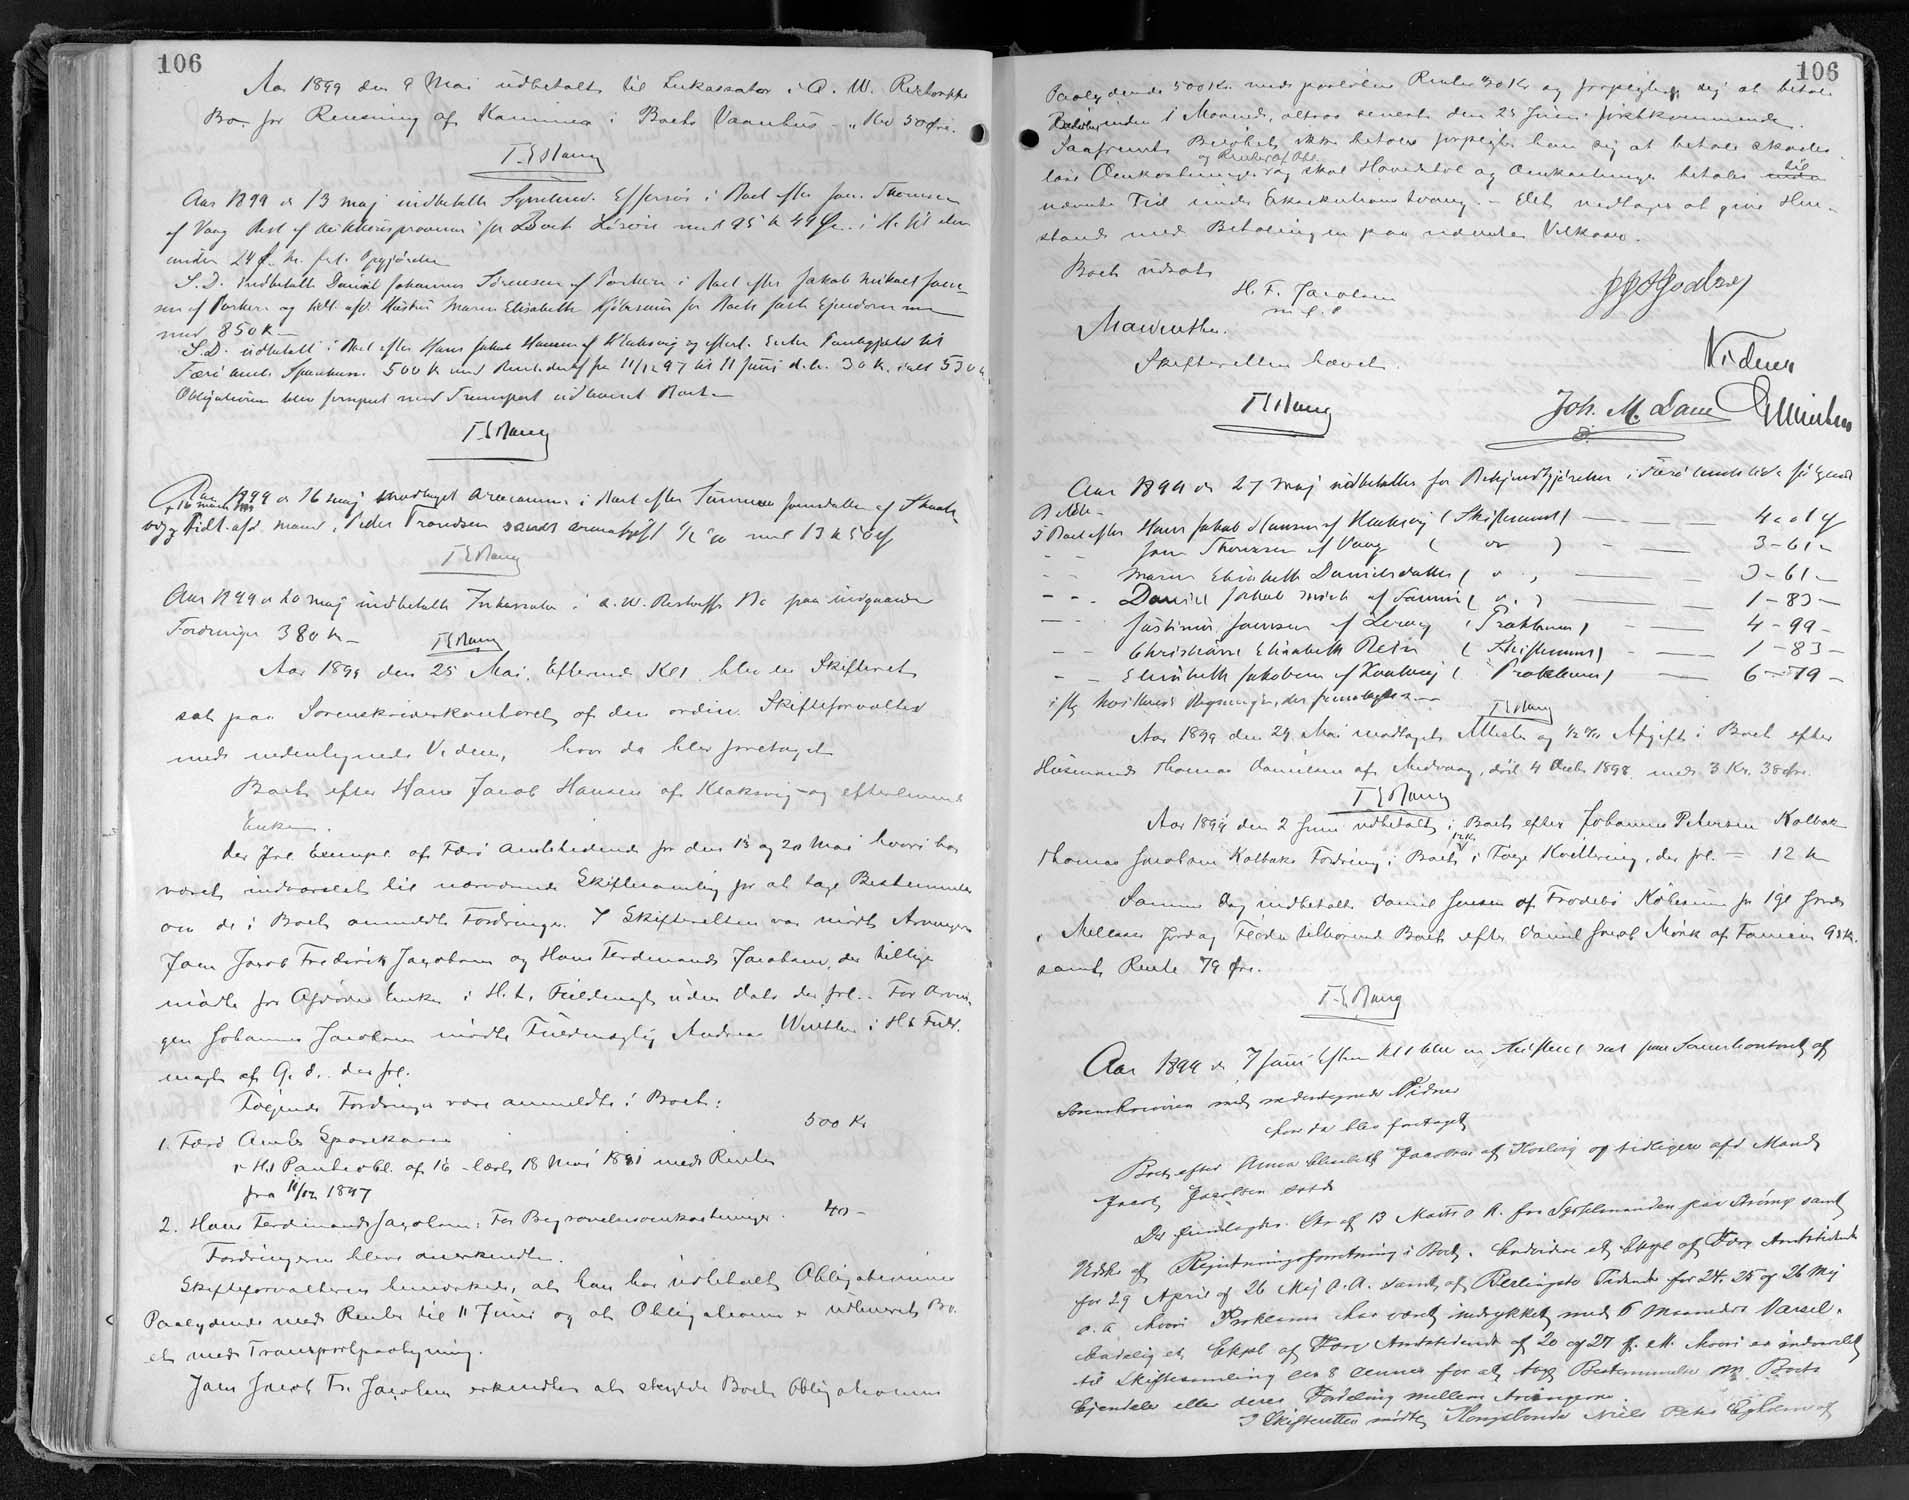 106
Aar 1899 den 9 Mai udbetalt til Inkassator i A. W. Restorffs
Bo. for Rensning af Kaminer i Boets Vaanhus - " Kr 50 Øre.
Aar 1899 d 13 maj indbetalte Sysselmd. Effersøe i Boet efter Joen Thomsen
af Vaag Rest af Auktionsprovenu for Boets Løsøre med 95 k 49 Øre i H. til den
under 24 f. M. frt. Opgjørelse
S.D. indbetalte Daniel Johannes Sørensen af Porkere i Boet efter Jakob Mikael Joen-
sen af Porkere og tidl. afd. Hustru Maren Elisabeth Kjøbesum for Boets faste Ejendom
med 850 K -
S.D. udbetalt i Boet efter Hans Jakob Hansen af Klaksvig og efterl. Enke Pantegjæld til
Færø Amts Sparekasse 500 k med Rente deraf fra 11/12 97 til 11 Juni d. A. 30 K. ialt 530 k
Obligationen blev forsynet med Transport udleveret Boet -
Aar 1899 d 16 maj modtaget Arveanm. i Boet efter Sunneva Joensdatter af
og tidl. afd. mand, Peder Trondsen samt arveafgift ½ % med 13 k 50 Ø
Aar 1899 d 20 maj indbetalte Inkassator i A. W. Restorffs Bo paa indgaaede
Fordringer 380 k -
Aar 1899 den 25 Mai. Efterm. Kl 1 blev en Skifteret
sat paa Sorenskriverkontoret af den ordin. Skifteforvalter
med undertegnede Vidner, hvor da blev foretaget
Boet efter Hans Jacob Hansen af Klaksvig og efterlevende
Enke.
Der frl. Exempl. af Færø Amtstidende for den 13 og 20 Mai hvori har
været indvarslet til nærværende Skiftesamling for at tage Bestemmelse
om de i Boet anmeldte Fordringer. I Skifteretten var mødt Arvingen
Joen Jacob Frederik Jacobsen og Hans Ferdinand Jacobsen, der tillige
mødte for Afdødes Enke i H. t. Fuldmagt uden Dato der frl. - For Arvin-
gen Johannes Jacobsen mødte Fuldmægtig Andreas Winther i H t Fuld-
magt af G. D. der frl.
Følgende Fordringer vare anmeldte i Boet:
1. Færø Amts Sparekasse 500 Kr
i H t Panteobl. af 16 - læst 18 Mai 1881 med Renter
fra 11/12 1897
2. Hans Ferdinand Jacobsen: For Begravelsesomkostninger. 40 -
Fordringerne bleve anerkendte.
Skifteforvalteren bemærkede, at han har udbetalt Obligationens
Paalydende med Renter til 11 Juni og at Obligationen er udleveret Bo-
et med Transportpaategning.
Joen Jacob Fr. Jacobsen erkendte at skylde Boet Obligationens
106
Paalydende 500 Kr. med paaløbne Renter 30 Kr og forpligter sig at betale
Beløbet inden 1 Maaned, altsaa senest den 25 Juni førstkommende.
Saafremt Beløbet ikke betales forpligter han sig at betale skades-
løse Omkostninger og skal Hovedstol og Omkostninger betales til
og Renter af Obl.
nævnte Tid under Exekutions tvang. - Det vedtoges at give Hen-
stand med Betalingen paa nævnte Vilkaar.
Boet udsat.
H. F. Jacobsen
m. f. P
Skifteretten hævet.
Vidner
Joh. M. Dam
Aar 1899 d 27 maj udbetaltes for Bekjendtgjørelser i Færø Amtstid. følgende
Beløb -
i Boet efter Hans Jakob Hansen af Klaksvig (Skiftesaml) - 4 - 01
- - Joen Thomsen af Vaag ( do ) - 3 - 61 -
- - Maren Elisabeth Danielsdatter ( do ) - 3 - 61 -
- - Daniel Jakob af ( do ) - 1 - 83 -
- - Joensen af (Proklama) - 4 - 99 -
- - Christiane Elisabeth (Skiftesaml) - 1 - 83 -
- - Elisabeth Jakobsen af (Proklama) - 6 - 79 -
iflg. kvitterede Regninger, der fremlagdes -
Aar 1899 den 29 Mai modtaget Atteste og ½ % Afgift i Boet efter
Husmand Thomas Danielsen af Midvaag, død 4 Decbr 1898 med 3 Kr. 38 Øre.
Aar 1899 den 2 Juni udbetalt i Boet efter Johannes Petersen Kolbak
Thomas Jacobsen Kolbaks Fordring i Boet 12 Kr i Følge Kvittering, der frl. = 12 k
Samme Dag indbetalte Daniel Jensen af Frodebø Købesum for 1 gl Jord
i Mellems Jord af tilhørende Boet efter Daniel Jacob Mørk af Famien 98 Kr.
samt Rente 79 Øre.
Aar 1899 d 7 Juni Eftm Kl 1 blev en Skifteret sat paa Sorenskontoret af
Sorenskriveren med undertegnede Vidner
hvor da blev foretaget
Boet efter Anna Elisabeth Jacobsen af og tidligere afd Mand
Jacob Jacobsen
Der fremlagdes Skr af 13 Marts d. A. fra Sysselmanden paa Strømø samt
Udskr af Registreringsforretning i Boet. Endvidere et Expl af Færø Amtstidende
for 29 April og 26 Maj d. A. samt af Berlingske Tidende for 24. 25 og 26 Maj
d. A. hvori Proklama har været indrykket med 6 Maaneders Varsel.
Endelig et Expl af Færø Amtstidende af 20 og 27 f. M. hvori er indvarslet
til Skiftesamling for at tage Bestemmelse om Boets
Ejendele eller deres Fordeling mellem Arvingerne.
I Skifteretten mødte Kongsbonde Niels Peter af